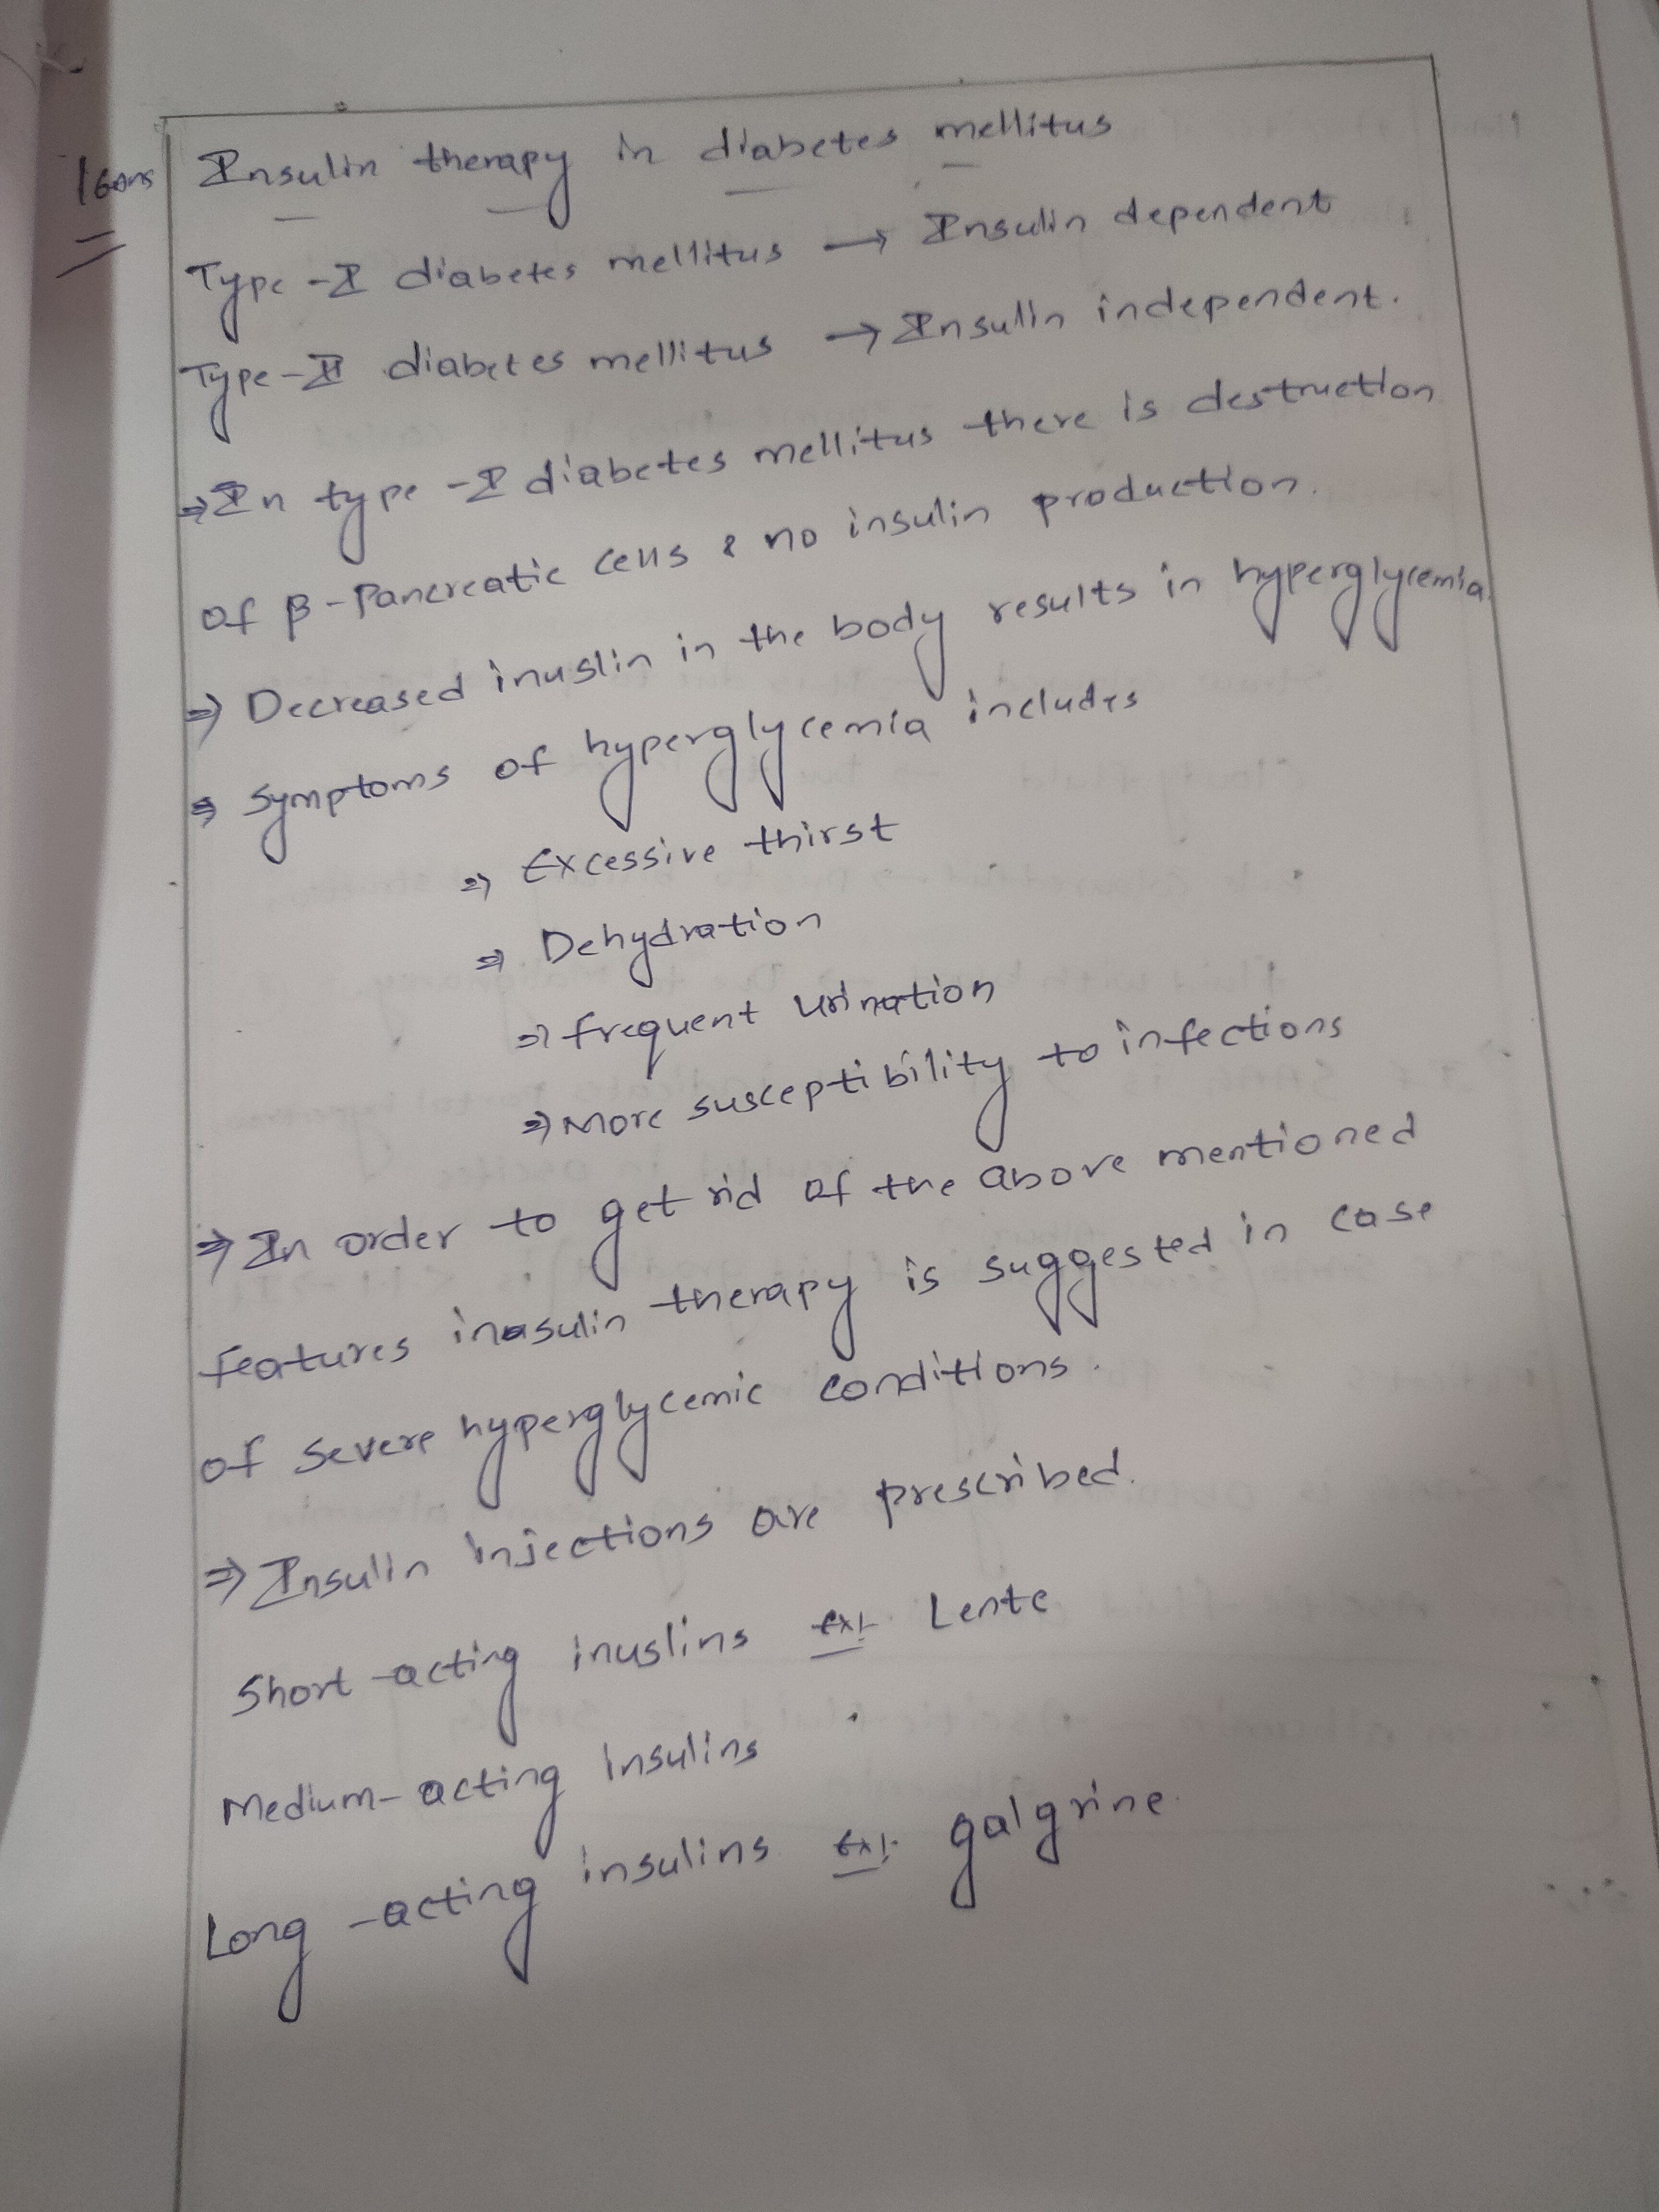 16ans Insulin therapy in diabetes mellitus
Type-I diabetes mellitus → Insulin dependent
Type-II diabetes mellitus → Insulin independent.
⇒ In type-I diabetes mellitus there is destruction
of β-Pancreatic cells & no insulin production.
⇒ Decreased inuslin in the body results in hyperglycemia.
⇒ Symptoms of hyperglycemia includes
⇒ Excessive thirst
⇒ Dehydration
⇒ frequent urination
⇒ More susceptibility to infections
⇒ In order to get rid of the above mentioned
features insulin therapy is suggested in case
of severe hyperglycemic conditions.
⇒ Insulin injections are prescribed.
Short-acting inuslins ex:- Lente
Medium-acting insulins
Long-acting insulins ex:- galgrine.